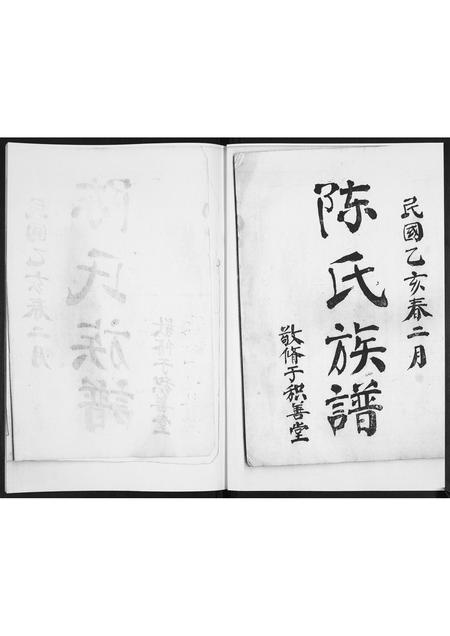 民國乙亥春二月
陈氏族譜
敬脩于积善堂